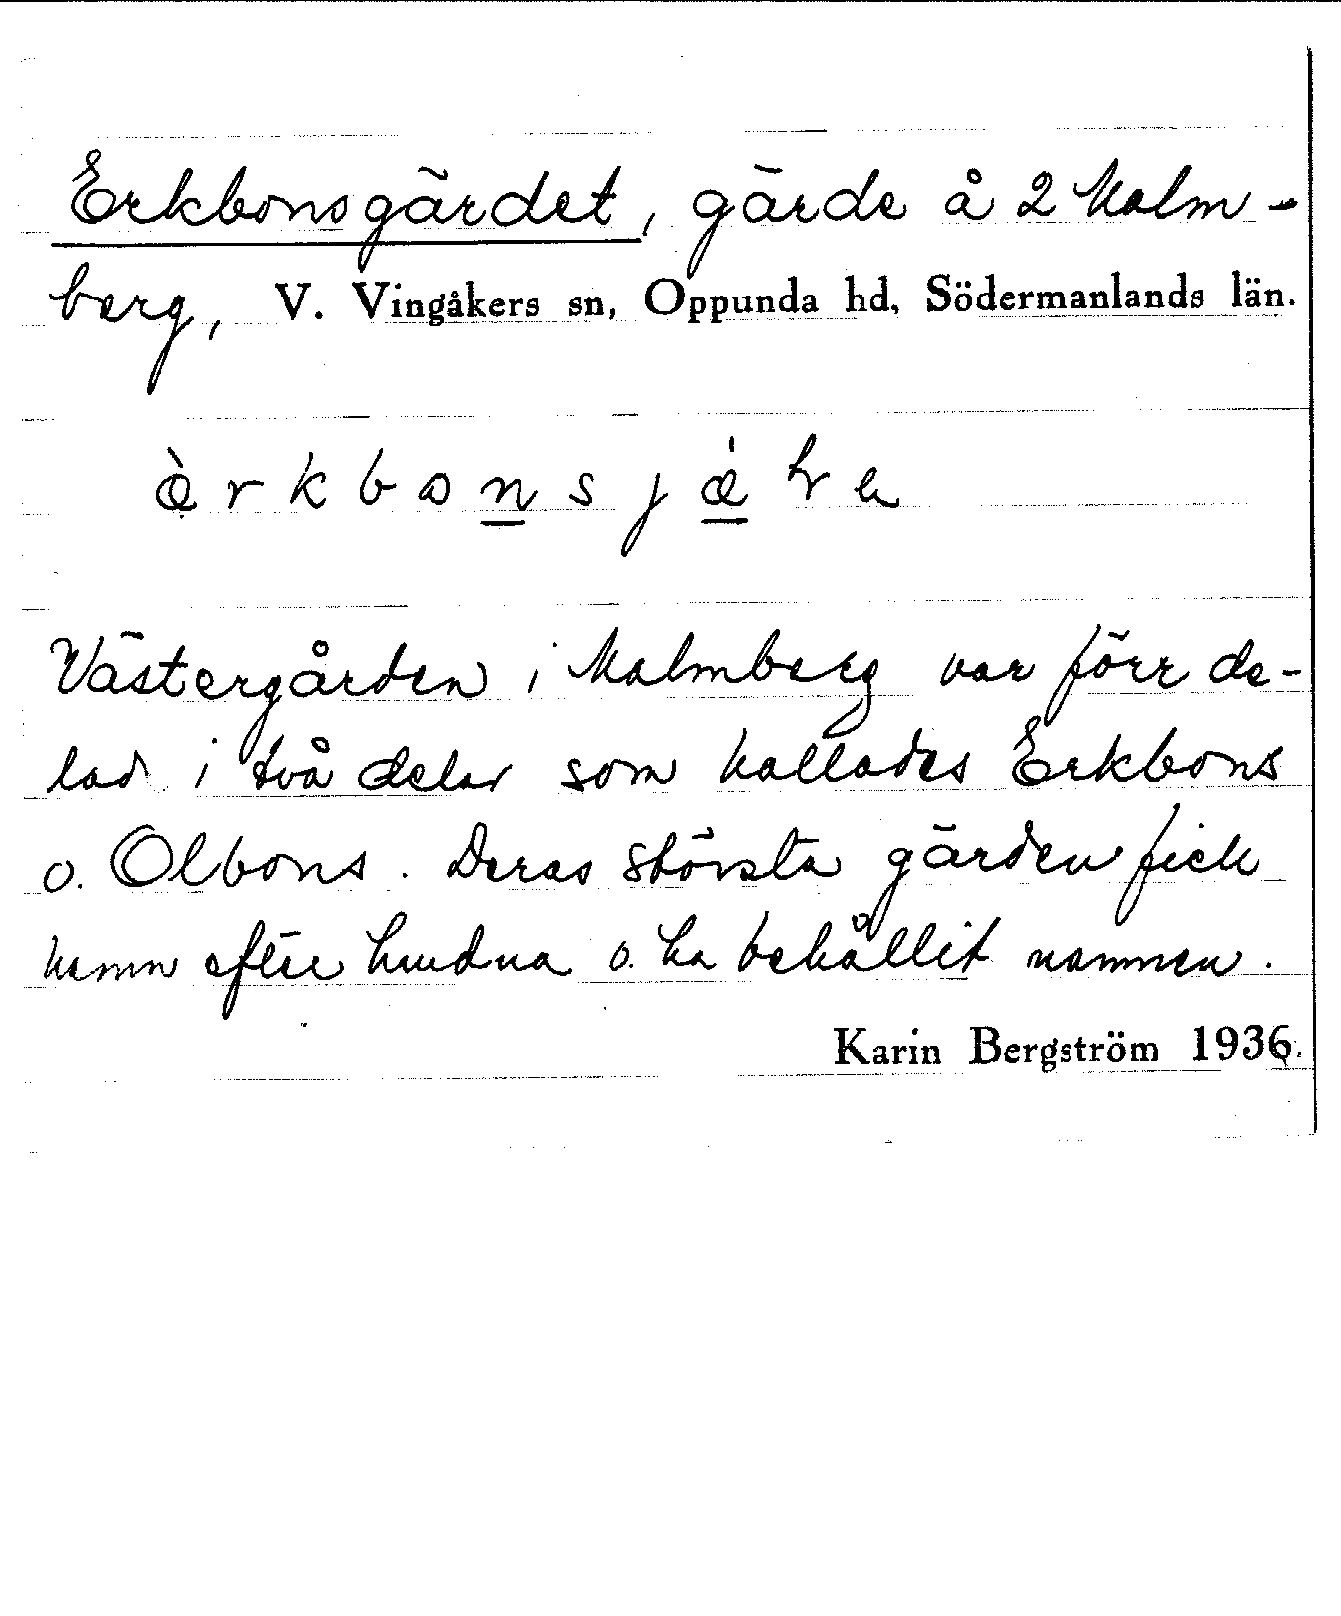 Erkbonsgärdet, gärde å 2 Malm-
berg, V. Vingåkers sn, Oppunda hd, Södermanlands län.
æ̀rkbon̲sjæ̲̍
Västergården i Malmberg var förr de-
lad i två delar som kallades Erkbons
o. Olbons. Deras största gärden fick
namn efter husdna o. ha behållit namnen.
Karin Bergström 1936.